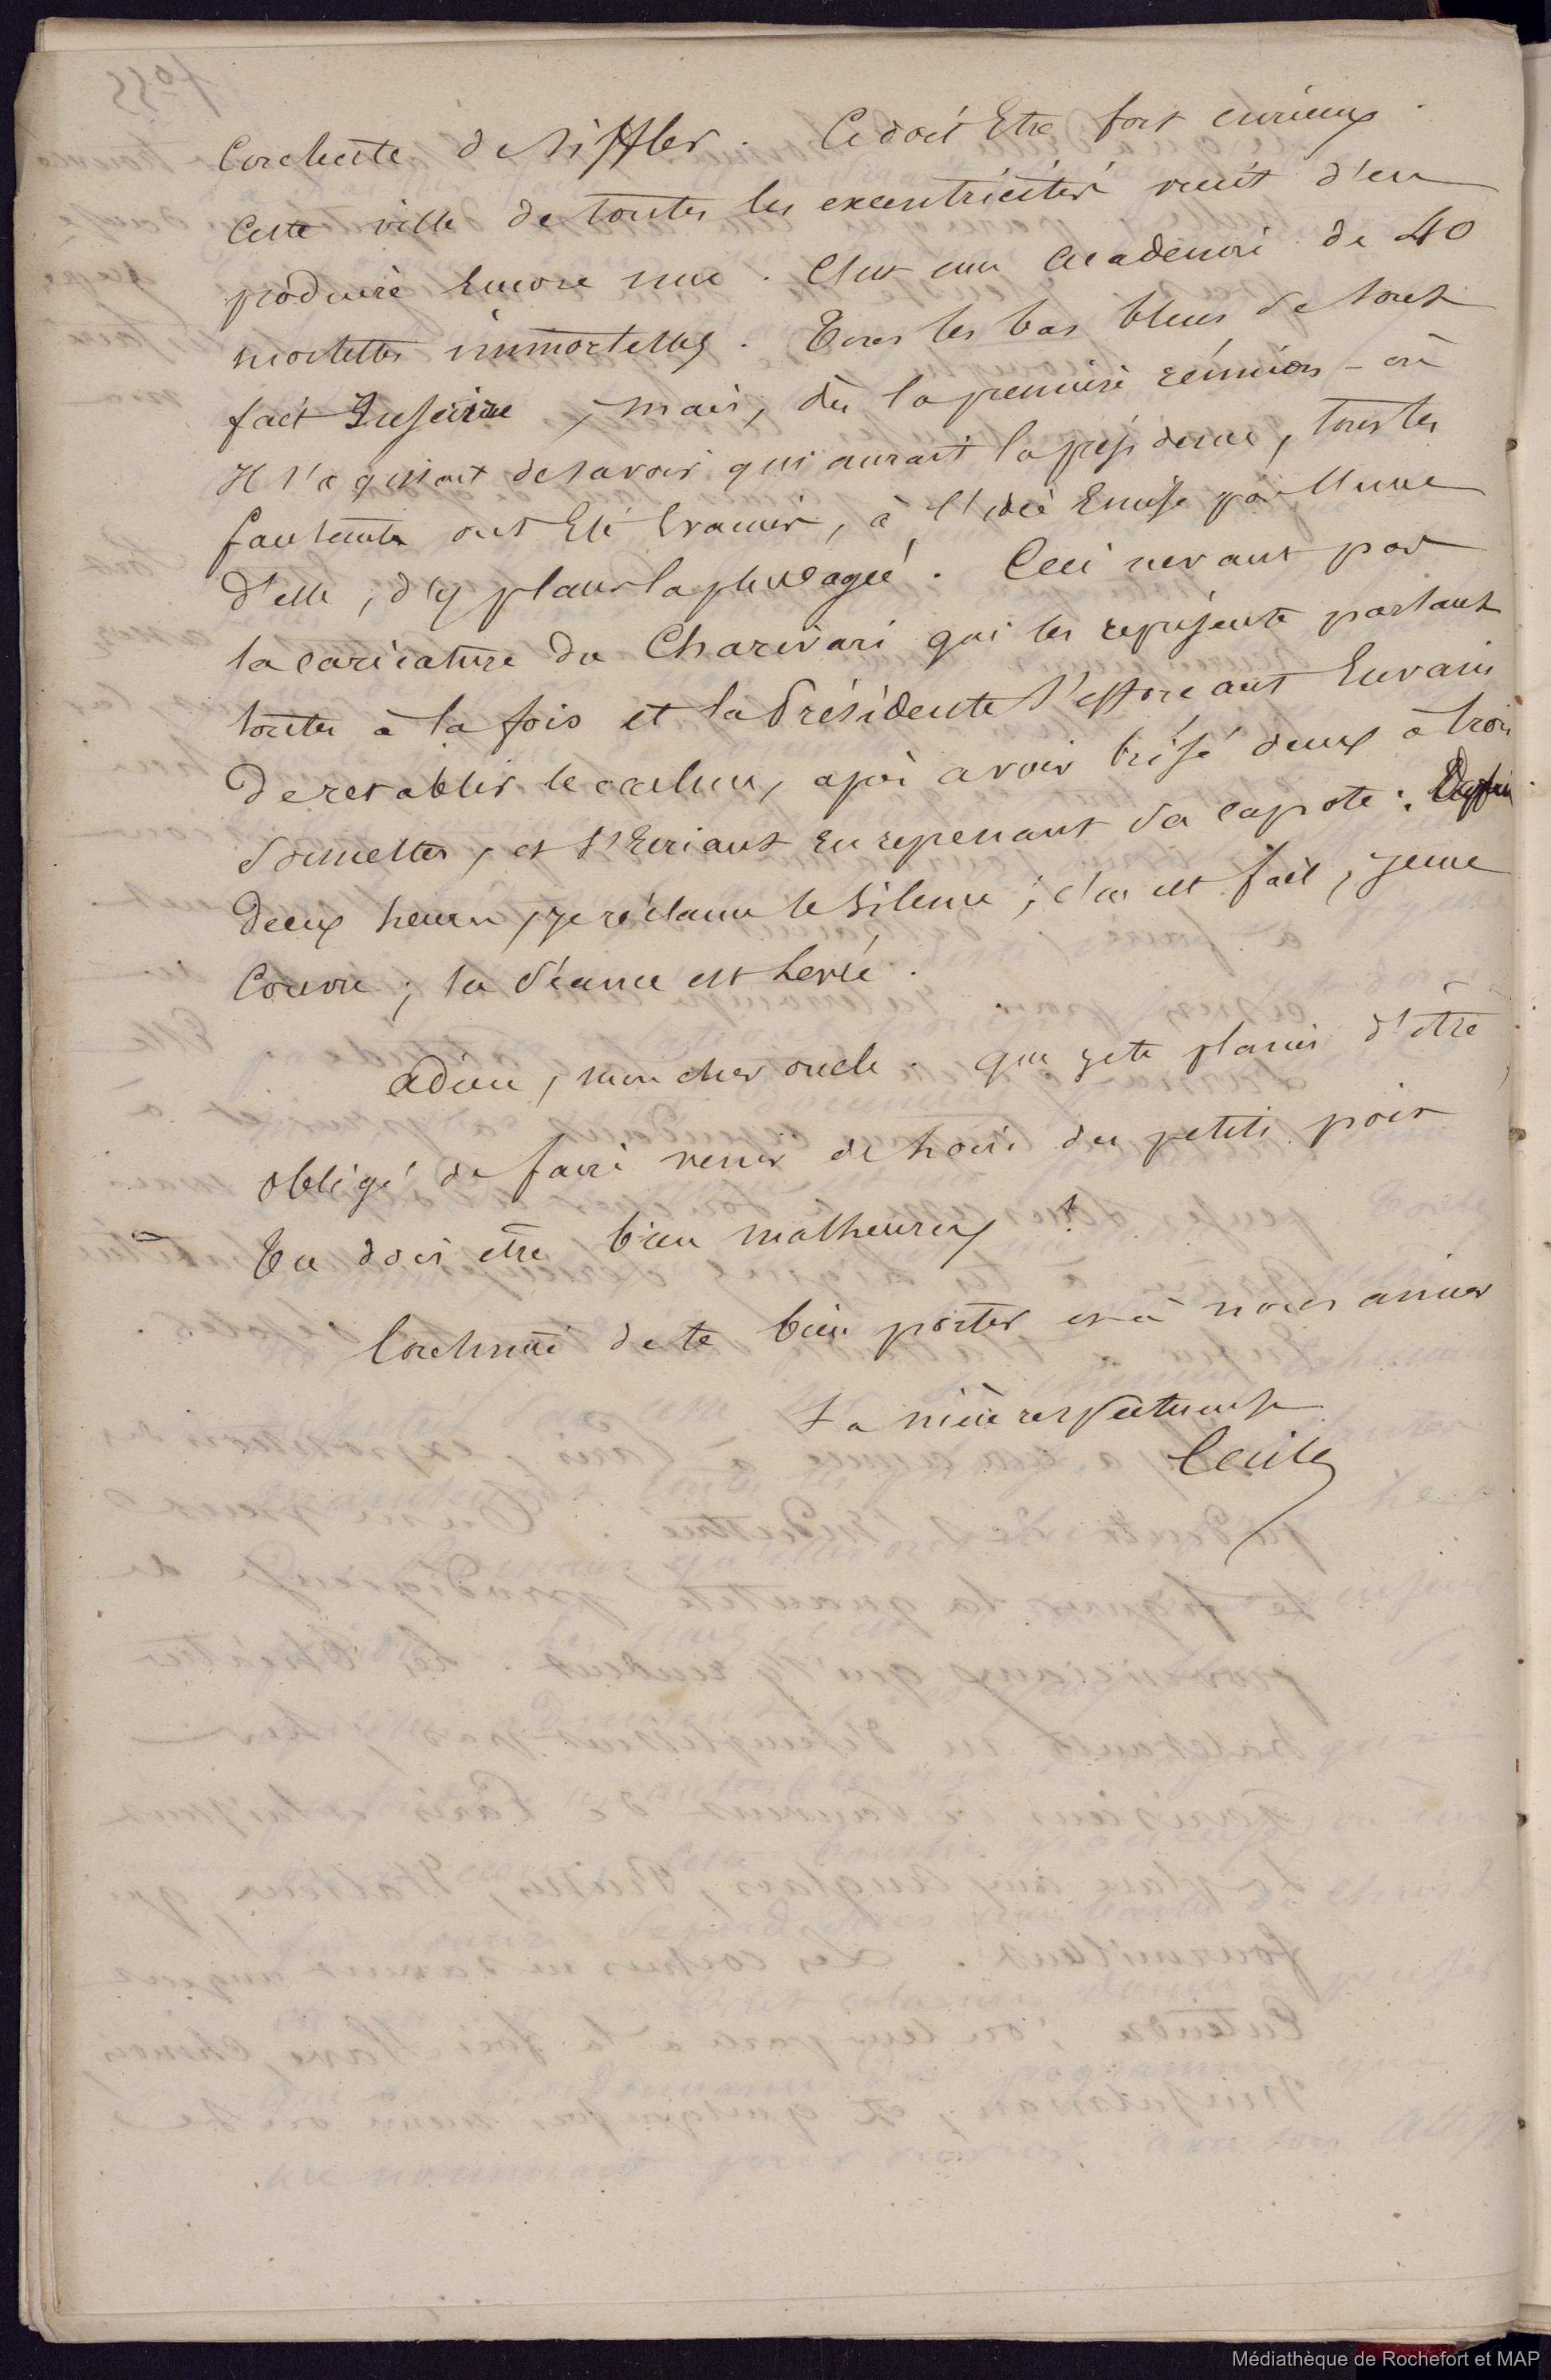 l'orchestre de siffler. Ce doit Etre fort curieux.
Cette ville de toutes les excentricités vient d'en
produire Encore une. C'est une academie de 40
mortelles immortelles. Tous les bas bleus se sont
fait Inscrire, mais, dès la première réunion – où
Il s'agissait de savoir qui aurait la présidence, tous les
fauteuils ont Eté vacants, à l'idée Emise par l'une
d'elle, d'y placer la plus agée. Ceci ne vaut pas
la caricature du Charivari qui les représente parlant
toutes à la fois et la Présidente s'efforçant Envain
de retablir le calme, après avoir brisé deux à trois
sonnettes, et s'Ecriant En reprenant sa capote : Depuis
deux heures, je réclame le silence ; c'en est fait, je me
couvre ; la séance est levée.
adieu, mon cher oncle. que je te plains d'être
obligé de faire venir de hoire des petits pois
Tu dois être bien malheureux !
Continue de te bien porter et à nous aimer
Ta nièce respectueuse
Cecile
Médiathèque de Rochefort et MAP